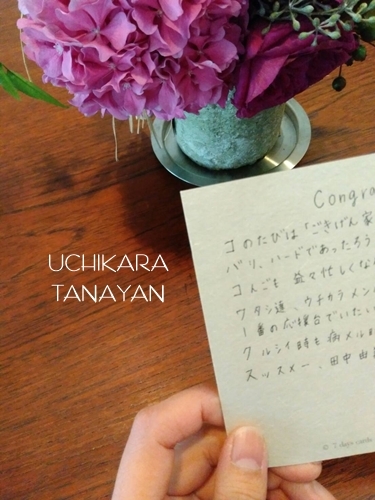 UCHIKARA
TANAYAN
Congra
コのたびは「ごきげん家
バリ、ハードであったろう
コんごも 益々忙しくなん
ワタシ達、ウチカラメン
1番の応援台でいたい
クルシイ時も病メル時
スッスメー、田中由
© 7 days cards